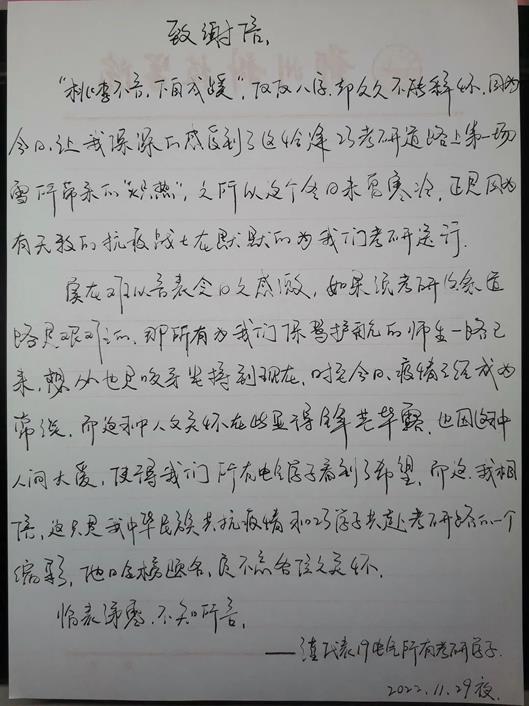 致谢信
“桃李不言,下自成蹊”,仅仅八字,却久久不能释怀,因为
今日,让我深深的感受到了这给余23考研道路上第一场
雪所带来的“炽热”,之所以这个冬日未觉寒冷,正是因为
有无数的抗疫战士在默默的为我们考研送行.
实在难以言表今日之感激,如果说考研的余道
路是艰难的,那所有为我们保驾护航的师生一路已
来,想必也是咬牙坚持到现在,时至今日,疫情已经成为
常态,而这种人文关怀在此显得锋芒毕露,也因这种
人间大爱,使得我们所有电气学子看到了希望,而这,我相
信,这只是我中华民族共抗疫情和23学子共赴考研路的一个
缩影,他日金榜题名,定不忘各位之关怀.
临表涕零,不知所言,
——谨代表19电气所有考研学子.
2022.11.29夜.